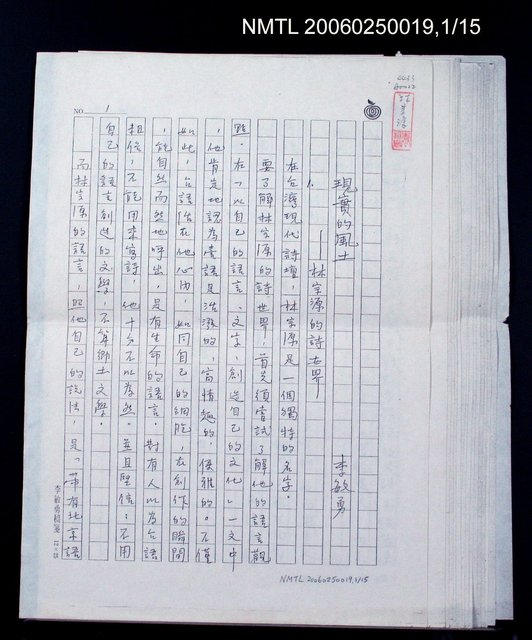 NMTL 20060250019,1/15
NO. 1
現實的風土
——林宗源的詩世界— 李敏勇
1.
在台灣現代詩壇,林宗源是一個獨特的名字。
要了解林宗源的詩世界,首先須嘗試了解他的語言觀
點。在「以自己的語言、文字,創造自己的文化」一文中
,他肯定地認為臺語是活潑的,富情趣的,優雅的。不僅
如此,台語活在他心內,如同自己的細胞,在創作的瞬間
,能自然而然地呼出,是有生命的語言。對有人以為台語
粗俗,不能用來寫詩,他十分不以為然。並且堅信:不用
自己的語言創造的文學,不算鄉土文學。
而林宗源的語言,照他自己的說法,是「帶有北京語
李敏勇稿箋
NMTL 20060250019,1/15